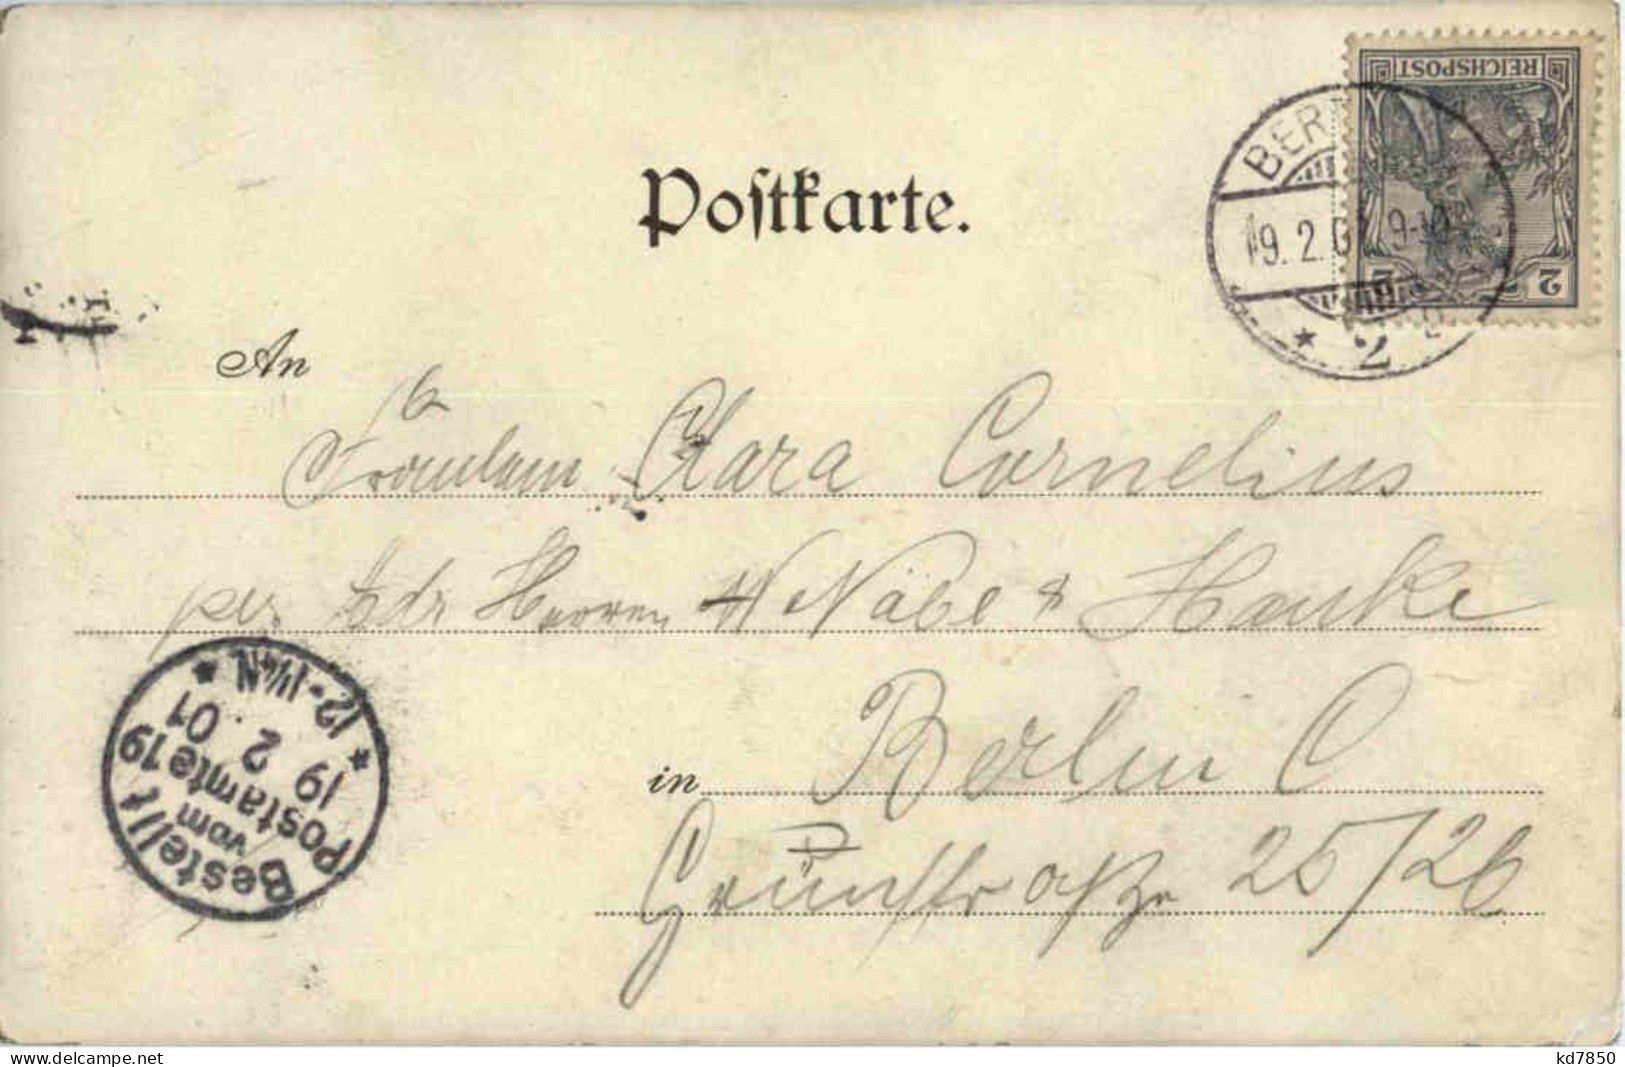 REICHSPOST
2 2
BER
19.2.0 9-10
* 2
Postkarte.
An
Fräulein Clara Cornelius
per Adr Herren W Näbe & Hanke
in Berlin C
Grünstraße 25/26
Bestellt
vom
Postamte 19
19 2. 01
* 12-1¼N *
delcampe.net
kd7850